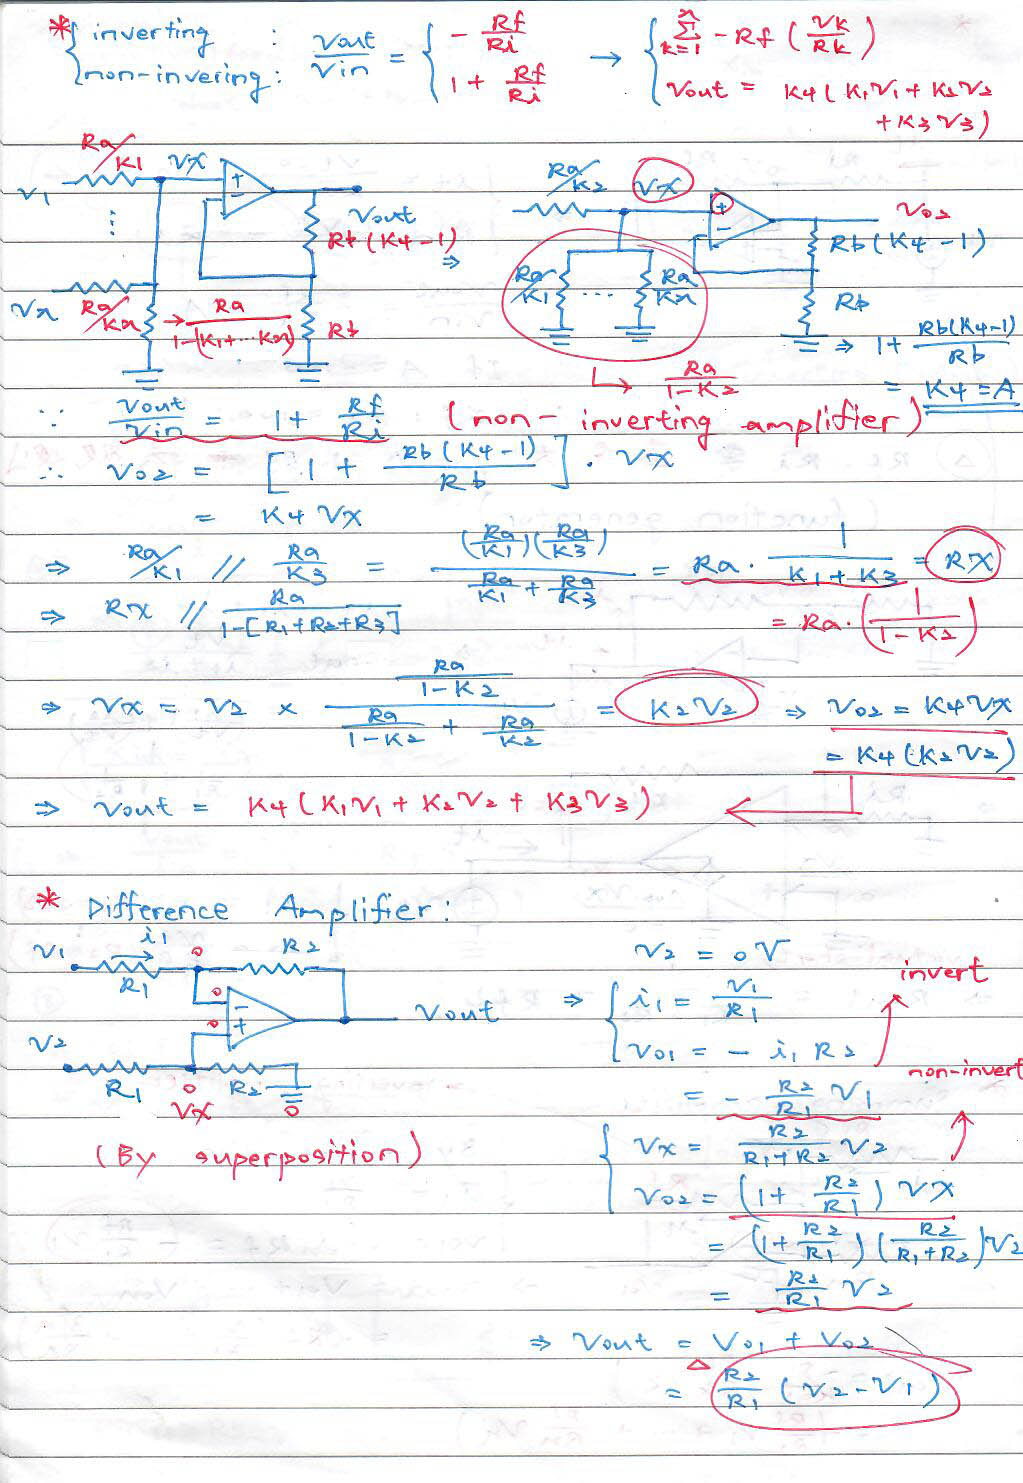 * { inverting : Vout/Vin = { - Rf/Ri → { Σ k=1 n - Rf ( Vk/Rk )
non-invering : 1 + Rf/Ri Vout = K4 ( K1V1 + K2V2 + K3V3 )
Ra/K1 Vx
V1 + -
⋮ Vout
Rb (K4-1)
Vn Ra/Kn → Ra/1-(K1+...Kn) Rb
⇒ Ra/K2 Vx + - Vo2
Rb (K4-1)
Ra/K1 ... Ra/Kn Rb
⇒ 1 + Rb(K4-1)/Rb
↳ Ra/1-K2 = K4 = A
∵ Vout/Vin = 1 + Rf/Ri ( non-inverting amplifier )
∴ Vo2 = [ 1 + Rb (K4-1)/Rb ] · Vx
= K4 Vx
⇒ Ra/K1 // Ra/K3 = (Ra/K1)(Ra/K3) / Ra/K1 + Ra/K3 = Ra · 1/K1+K3 = Rx
⇒ Rx // Ra/1-[R1+R2+R3] = Ra · ( 1/1-K2 )
⇒ Vx = V2 × Ra/1-K2 / Ra/1-K2 + Ra/K2 = K2V2 ⇒ Vo2 = K4Vx
= K4 (K2V2)
⇒ Vout = K4 ( K1V1 + K2V2 + K3V3 ) ←
* Difference Amplifier :
V1 i1 → o R2
R1 o - Vout
V2 o +
R1 o R2 o
Vx
( By superposition )
V2 = 0V
⇒ { i1 = V1/R1 invert
Vo1 = - i1 R2
= - R2/R1 V1 non-invert
{ Vx = R2/R1+R2 V2
Vo2 = ( 1 + R2/R1 ) Vx
= ( 1 + R2/R1 ) ( R2/R1+R2 ) V2
= R2/R1 V2
⇒ Vout = Vo1 + Vo2
△ = R2/R1 ( V2 - V1 )